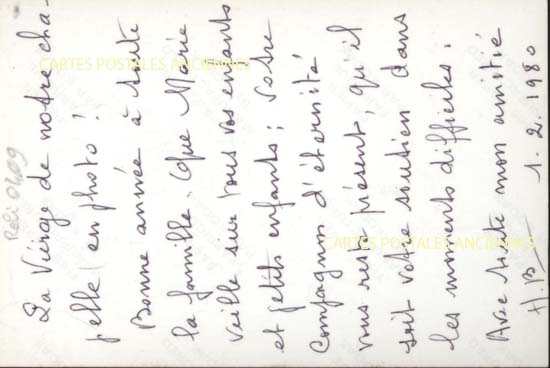 La Vierge de notre cha-
pelle en photo !
Bonne année à toute
la famille. Que Marie
veille sur tous vos enfants
et petits enfants ; votre
Compagnon d'éternité
vous reste présent, qu'il
soit votre soutien dans
les moments difficiles.
Avec toute mon amitié
H.B— 1.2.1980
Reli 0409
CARTES POSTALES ANCIENNES
CARTES POSTALES ANCIENNES